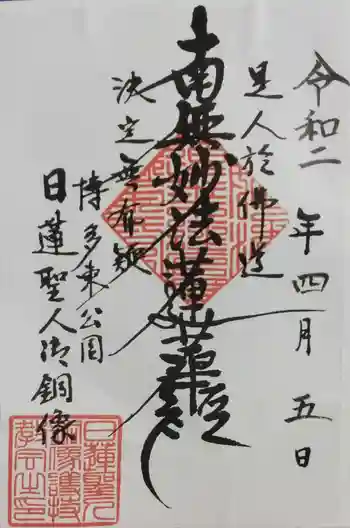 令和二年四月五日
是人於佛道
南無妙法蓮華経
決定無有疑
博多東公園
日蓮聖人御銅像